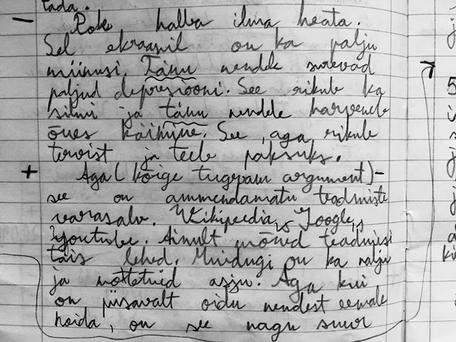 tada.
– Pole halba ilma heata.
Sel ekraanil on ka palju
miinusi. Tänu nendele saavad
paljud depresiooni. See rikub ka
silmi ja tänu nendele harveneb
õues käimine. See aga rikub
tervist ja teeb paksuks.
+ Aga (kõige tugevam argument) –
see on ammendamatu teadmiste
varasalv. Wikipeedia, Google,
Youtube. Ainult mõned teadmisi
täis lehed. Muidugi on ka palju
ja mõttetuid asju. Aga kui
on piisavalt oidu nendest eemale
hoida, on see nagu suur